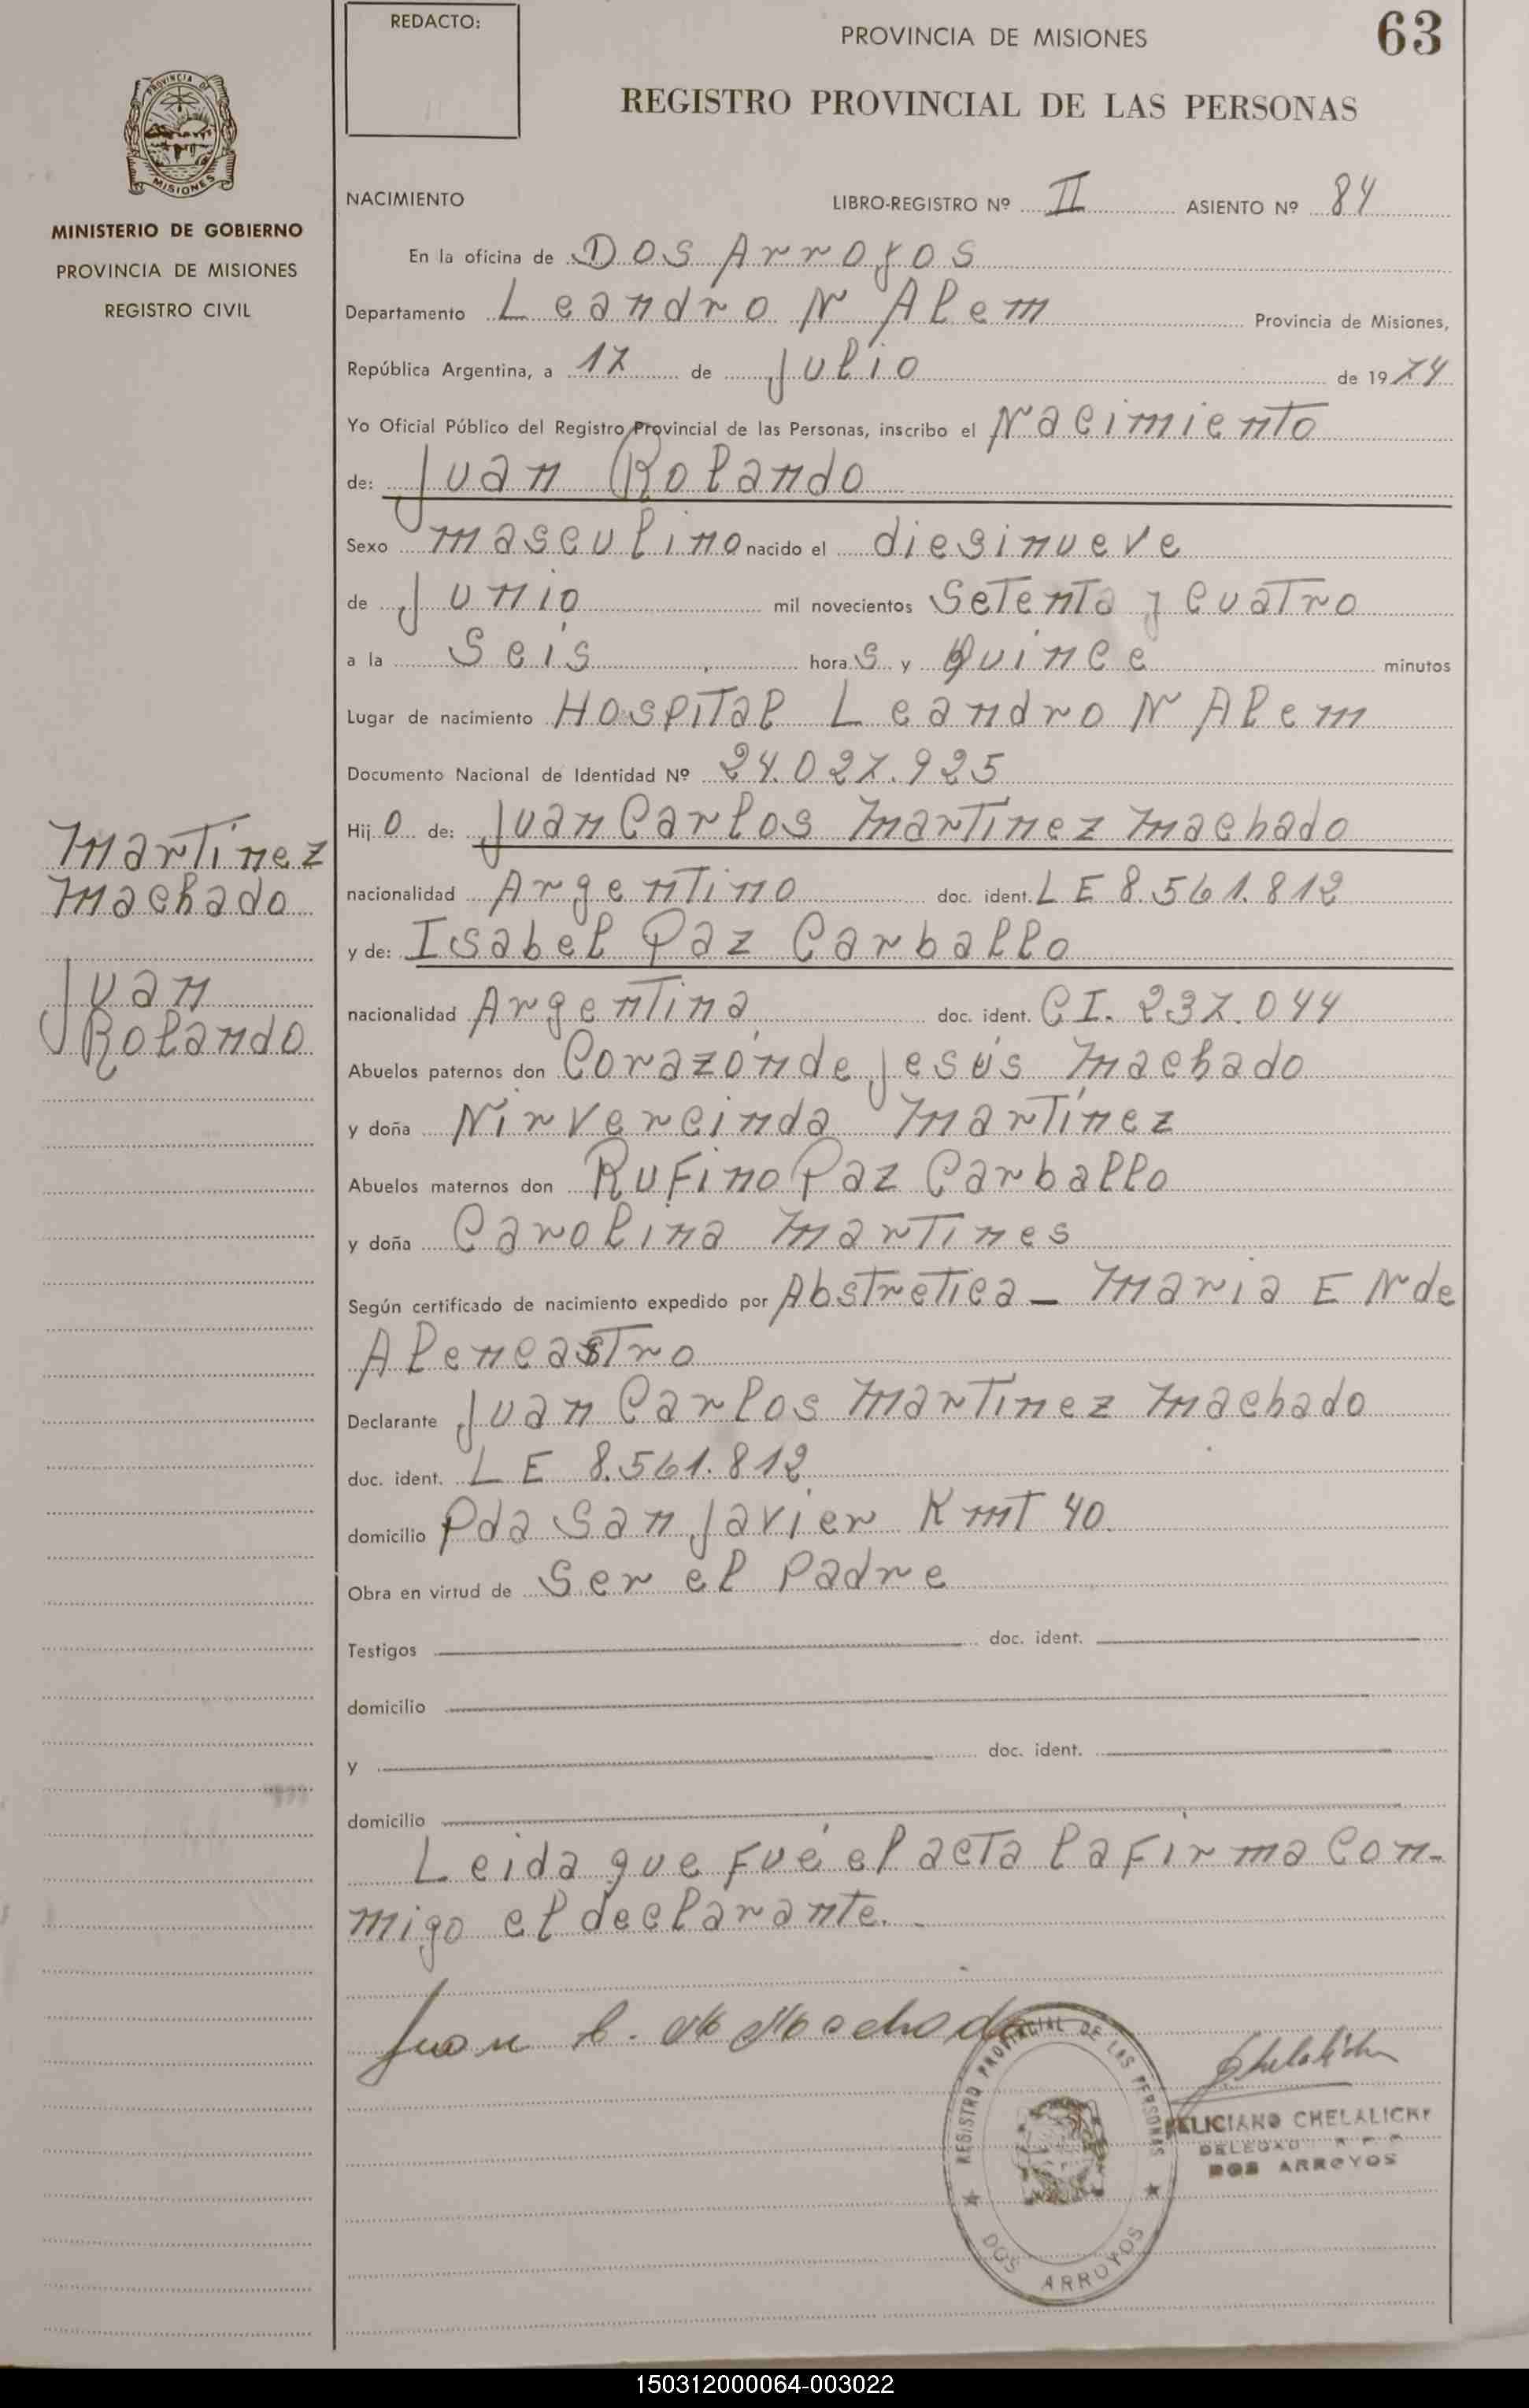 REDACTO:
PROVINCIA DE MISIONES
63
REGISTRO PROVINCIAL DE LAS PERSONAS
PROVINCIA DE
MISIONES
MINISTERIO DE GOBIERNO
PROVINCIA DE MISIONES
REGISTRO CIVIL
NACIMIENTO LIBRO-REGISTRO Nº II ASIENTO Nº 84
En la oficina de Dos Arroyos
Departamento Leandro N Alem Provincia de Misiones,
República Argentina, a 17 de Julio de 1974
Yo Oficial Público del Registro Provincial de las Personas, inscribo el Nacimiento
de: Juan Rolando
Sexo masculino nacido el diesinueve
de Junio mil novecientos Setenta y Cuatro
a la Seis horas y Quince minutos
Lugar de nacimiento Hospital Leandro N Alem
Documento Nacional de Identidad Nº 24.027.925
Hijo de: Juan Carlos Martinez Machado
nacionalidad Argentino doc. ident. LE 8.561.812
y de: Isabel Paz Carballo
nacionalidad Argentina doc. ident. CI. 237.044
Abuelos paternos don Corazón de Jesús Machado
y doña Nirvercinda Martínez
Abuelos maternos don Rufino Paz Carballo
y doña Carolina Martines
Según certificado de nacimiento expedido por Abstretica - Maria E N de
Alencastro
Declarante Juan Carlos Martinez Machado
doc. ident. LE 8.561.812
domicilio Pda San Javier Kmt 40.
Obra en virtud de Ser el Padre
Testigos doc. ident.
domicilio
y doc. ident.
domicilio
Leida que fué el acta la firma con-
migo el declarante.
Martínez
Machado
Juan
Rolando
Juan C. M Machado
REGISTRO PROVINCIAL DE LAS PERSONAS
DOS ARROYOS
Chelalichy
FELICIANO CHELALICHY
DELEGADO R P P
DOS ARROYOS
150312000064-003022